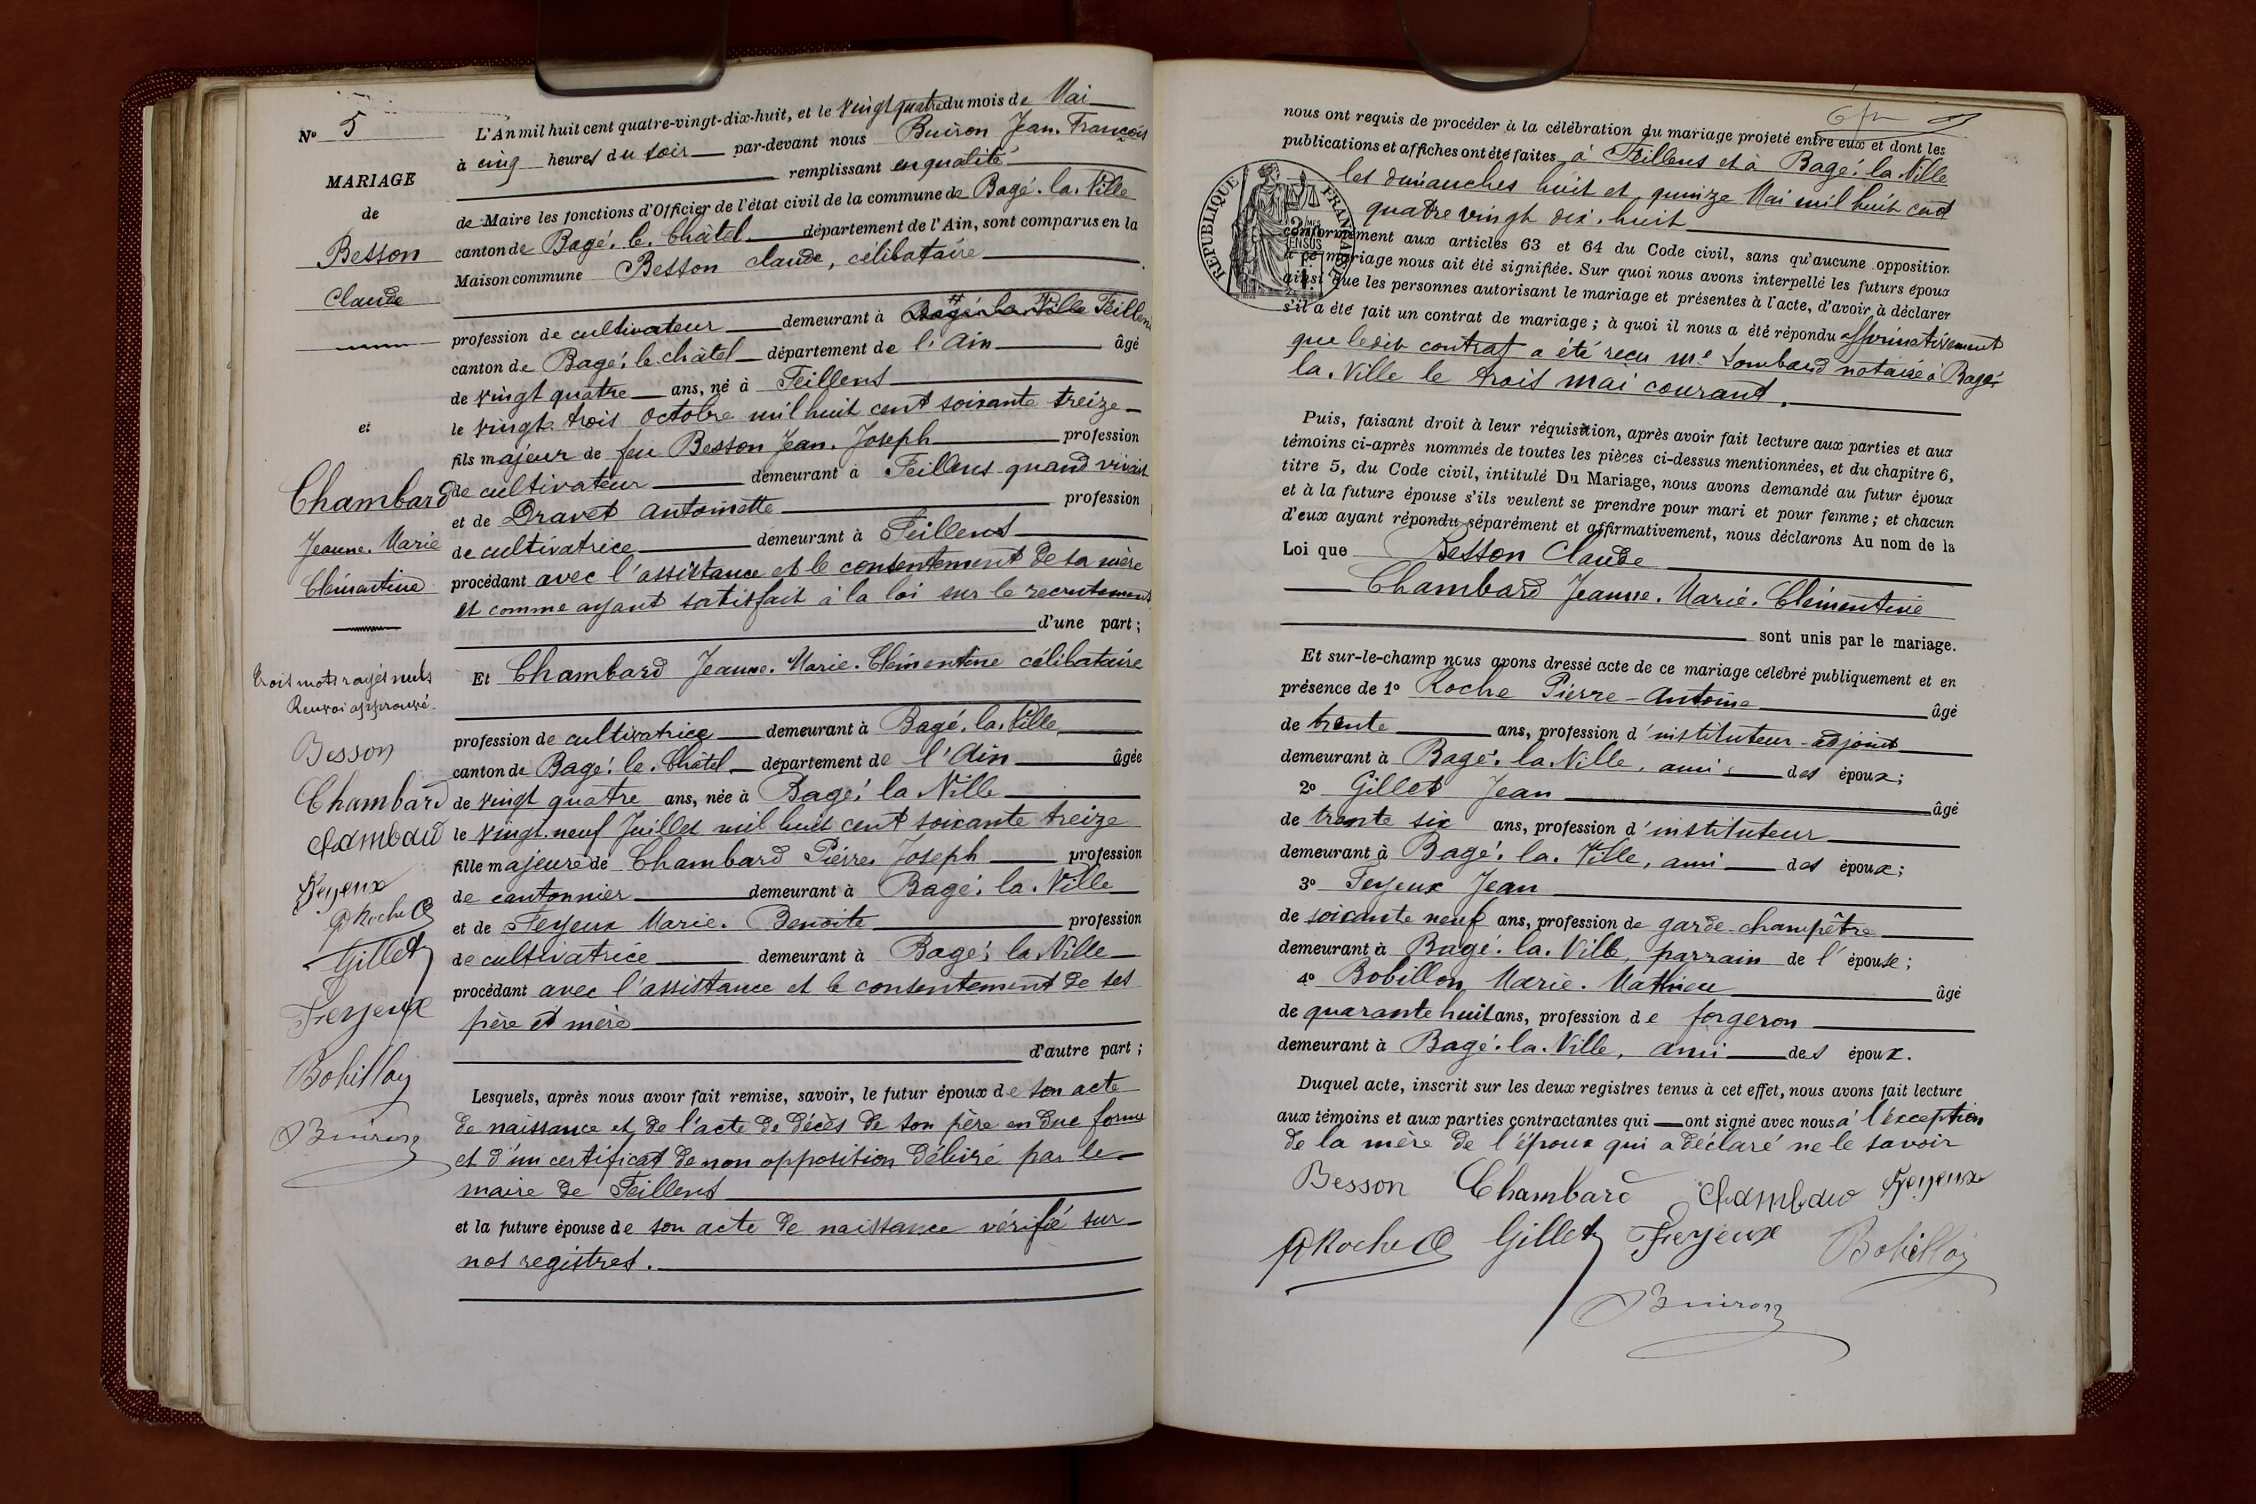 N° 5
MARIAGE
de
Besson
Claude
et
Chambard
Jeanne. Marie
Clémentine
trois mots rayés nuls
Renvoi approuvé.
Besson
Chambard
Chambard
Feyeux
Roche
Gillet
Feyeux
Bobillon
Buiron
L'An mil huit cent quatre-vingt-dix-huit, et le vingt quatre du mois de Mai
à cinq heures du soir par-devant nous Buiron Jean. François
remplissant en qualité
de Maire les fonctions d'Officier de l'état civil de la commune de Bagé. la. Ville
canton de Bagé. le. Châtel département de l'Ain, sont comparus en la
Maison commune Besson Claude, célibataire
profession de cultivateur demeurant à Bagé. la. Ville Feillens
canton de Bagé. le châtel département de l'Ain âgé
de vingt quatre ans, né à Feillens
le vingt. trois octobre mil huit cent soixante treize
fils majeur de feu Besson Jean. Joseph profession
de cultivateur demeurant à Feillens quand vivait
et de Dravet Antoinette profession
de cultivatrice demeurant à Feillens
procédant avec l'assistance et le consentement de sa mère
et comme ayant satisfait à la loi sur le recrutement
d'une part;
Et Chambard Jeanne. Marie. Clémentine célibataire
profession de cultivatrice demeurant à Bagé. la. Ville
canton de Bagé. le. Châtel département de l'Ain âgée
de vingt quatre ans, née à Bagé. la Ville
le vingt. neuf Juillet mil huit cent soixante treize
fille majeure de Chambard Pierre. Joseph profession
de cantonnier demeurant à Bagé. la. Ville
et de Feyeux Marie. Benoite profession
de cultivatrice demeurant à Bagé. la. Ville
procédant avec l'assistance et le consentement de ses
père et mère
d'autre part;
Lesquels, après nous avoir fait remise, savoir, le futur époux de son acte
de naissance et de l'acte de décès de son père en due forme
et d'un certificat de non opposition délivré par le
maire de Feillens
et la future épouse de son acte de naissance vérifié sur
nos registres.
nous ont requis de procéder à la célébration du mariage projeté entre eux et dont les
publications et affiches ont été faites à Feillens et à Bagé. la Ville
les dimanches huit et quinze Mai mil huit cent
quatre vingt dix. huit
RÉPUBLIQUE FRANÇAISE
conformément aux articles 63 et 64 du Code civil, sans qu'aucune opposition
à ce mariage nous ait été signifiée. Sur quoi nous avons interpellé les futurs époux
ainsi que les personnes autorisant le mariage et présentes à l'acte, d'avoir à déclarer
s'il a été fait un contrat de mariage; à quoi il nous a été répondu affirmativement
que ledit contrat a été reçu Me Lombard notaire à Bagé
la. Ville le trois mai courant.
Puis, faisant droit à leur réquisition, après avoir fait lecture aux parties et aux
témoins ci-après nommés de toutes les pièces ci-dessus mentionnées, et du chapitre 6,
titre 5, du Code civil, intitulé Du Mariage, nous avons demandé au futur époux
et à la future épouse s'ils veulent se prendre pour mari et pour femme; et chacun
d'eux ayant répondu séparément et affirmativement, nous déclarons Au nom de la
Loi que Besson Claude
Chambard Jeanne. Marie. Clémentine
sont unis par le mariage.
Et sur-le-champ nous avons dressé acte de ce mariage célébré publiquement et en
présence de 1° Roche Pierre-Antoine âgé
de trente ans, profession d'instituteur-adjoint
demeurant à Bagé. la. Ville, ami des époux;
2° Gillet Jean âgé
de trente six ans, profession d'instituteur
demeurant à Bagé. la. Ville, ami des époux;
3° Feyeux Jean
de soixante neuf ans, profession de garde-champêtre
demeurant à Bagé. la. Ville, parrain de l'épouse;
4° Bobillon Marie. Mathieu âgé
de quarante huit ans, profession de forgeron
demeurant à Bagé. la. Ville, ami des époux.
Duquel acte, inscrit sur les deux registres tenus à cet effet, nous avons fait lecture
aux témoins et aux parties contractantes qui ont signé avec nous à l'exception
de la mère de l'époux qui a déclaré ne le savoir
Besson Chambard Chambard Feyeux
Roche Gillet Feyeux Bobillon
Buiron